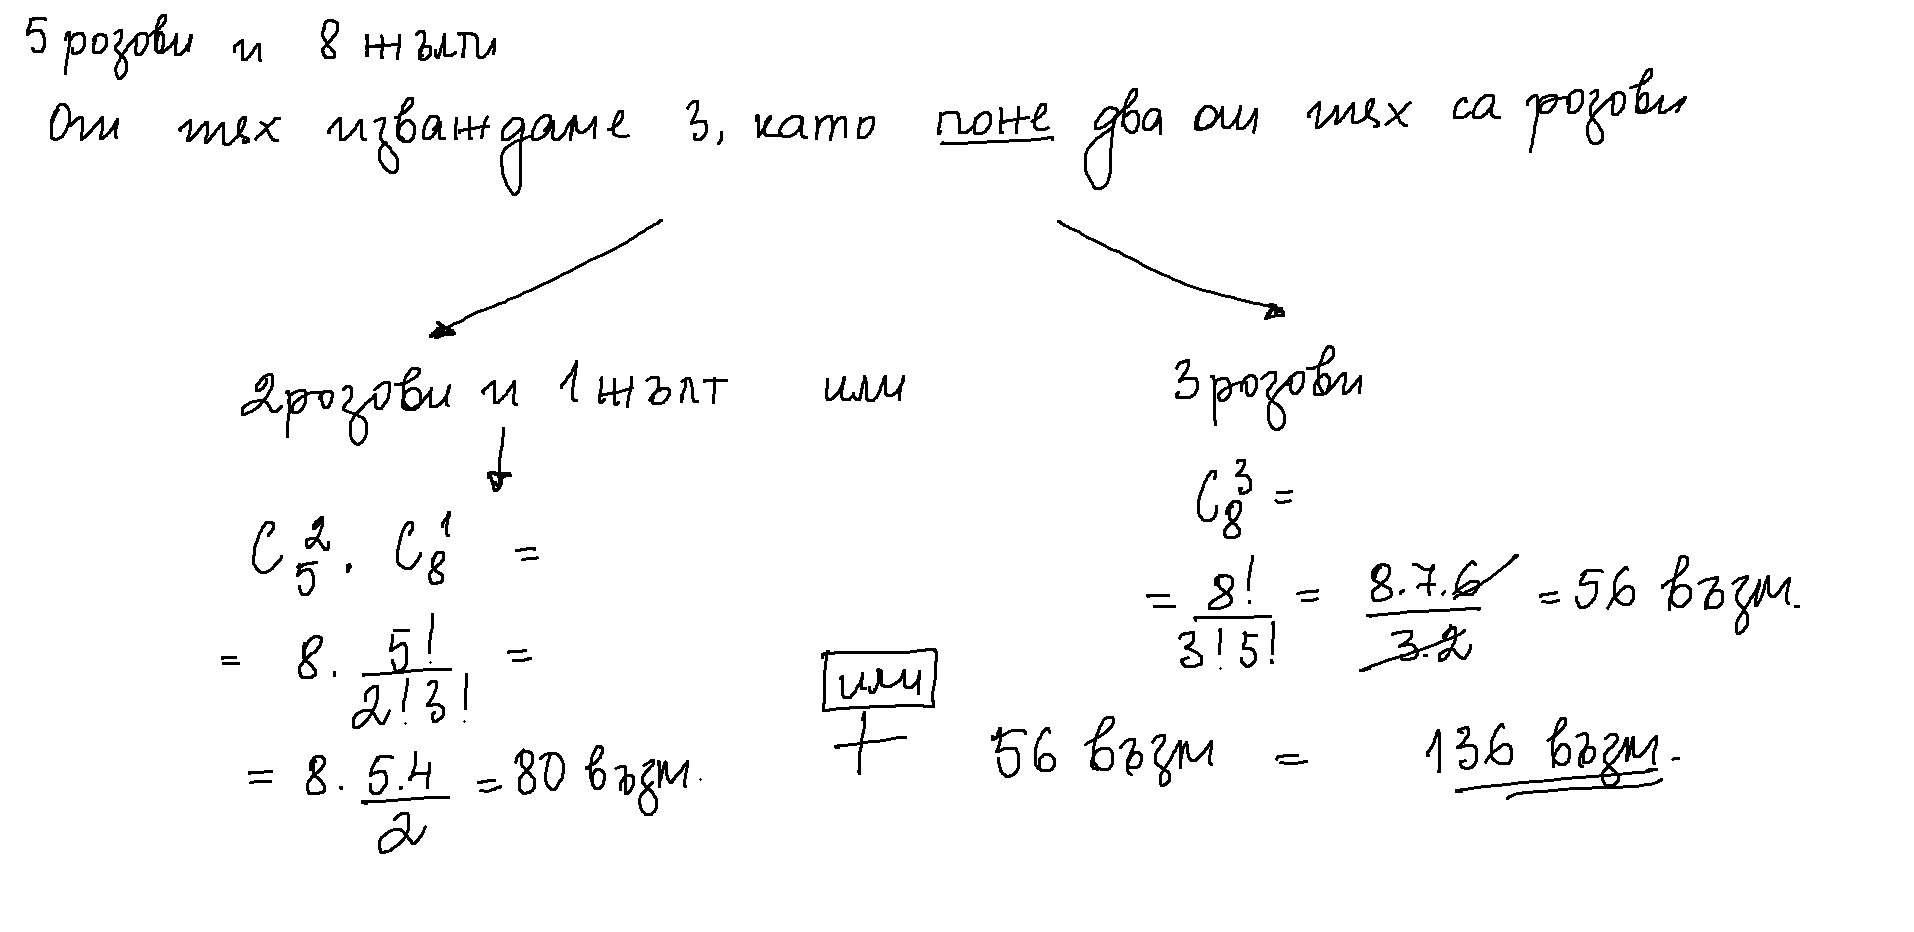 5 розови и 8 жълти
От тях изваждаме 3, като поне два от тях са розови
2 розови и 1 жълт или 3 розови
C₅² . C₈¹ =
= 8 . 5!/(2!3!) =
= 8 . 5.4/2 = 80 възм.
C₈³ =
= 8!/(3!5!) = 8.7.6/3.2 = 56 възм.
или
+ 56 възм = 136 възм.